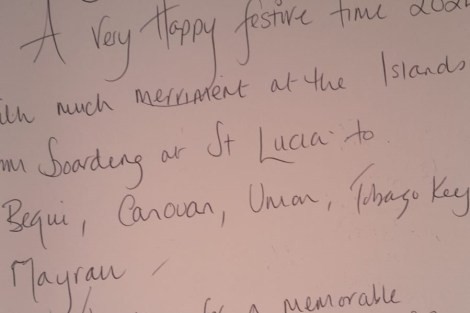 A Very Happy festive time 202
ith much merriment at the Islands
m boarding at St Lucia to
Bequi, Canouan, Union, Tobago Keys
Mayrau
for a memorable